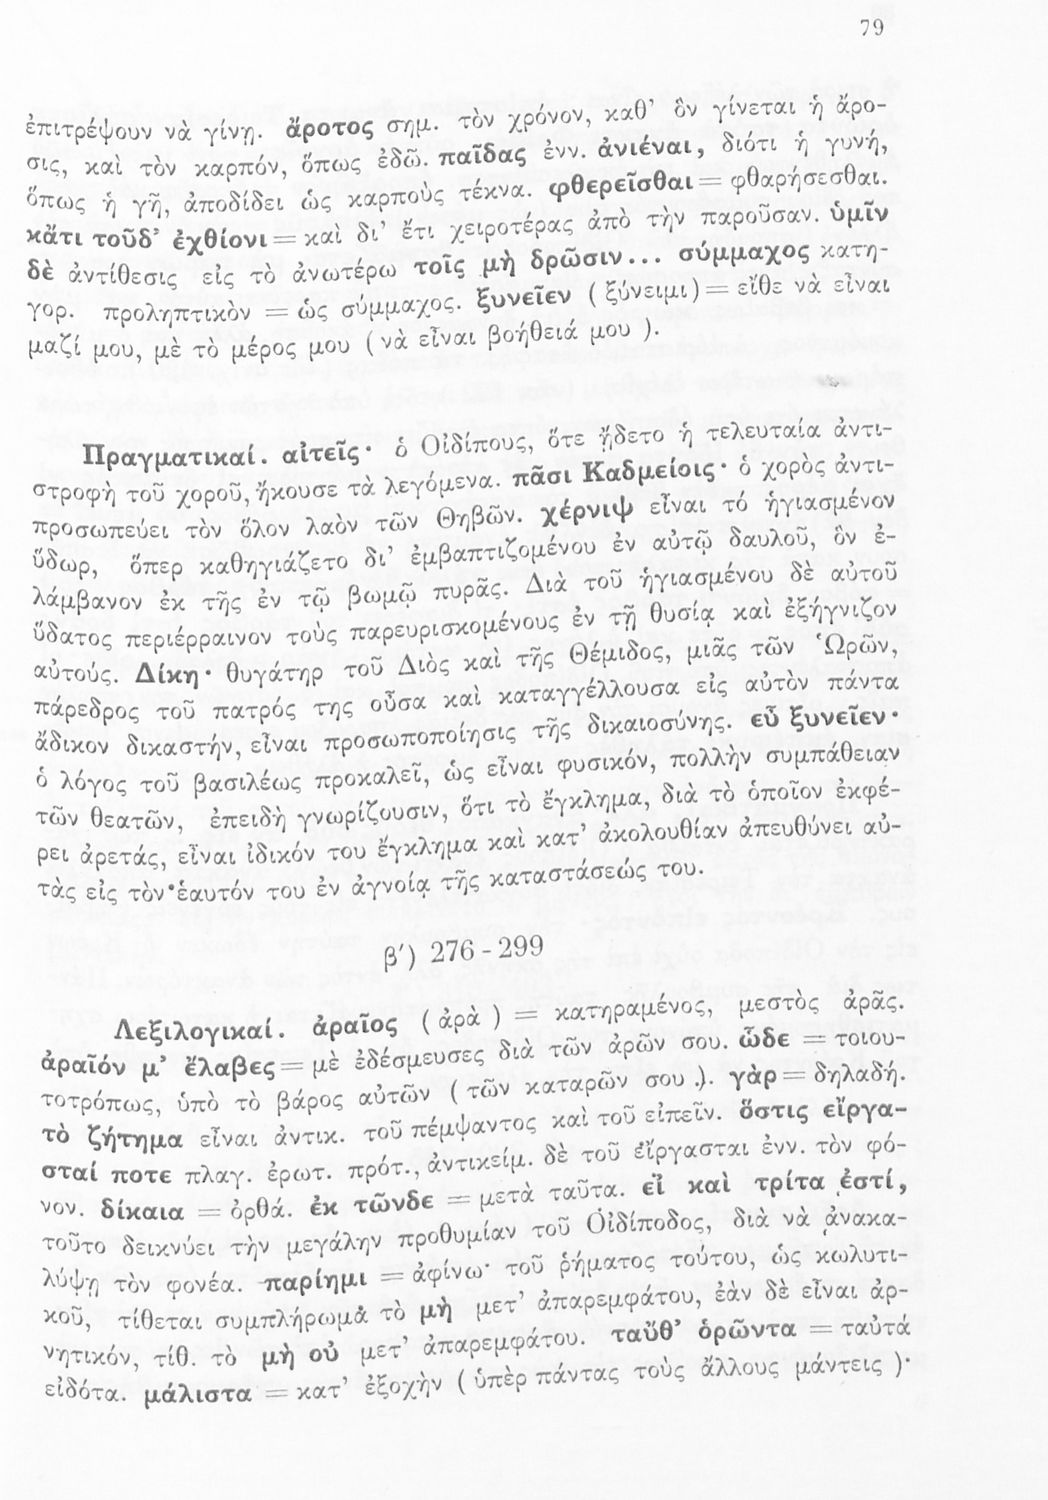 79
ἐπιτρέψουν νὰ γίνῃ. ἄροτος σημ. τὸν χρόνον, καθ' ὃν γίνεται ἡ ἄρο-
σις, καὶ τὸν καρπόν, ὅπως ἐδῶ. παῖδας ἐνν. ἀνιέναι, διότι ἡ γυνή,
ὅπως ἡ γῆ, ἀποδίδει ὡς καρποὺς τέκνα. φθερεῖσθαι = φθαρήσεσθαι.
κἄτι τοῦδ' ἐχθίονι = καὶ δι' ἔτι χειροτέρας ἀπὸ τὴν παροῦσαν. ὑμῖν
δὲ ἀντίθεσις εἰς τὸ ἀνωτέρω τοῖς μὴ δρῶσιν... σύμμαχος κατη-
γορ. προληπτικὸν = ὡς σύμμαχος. ξυνεῖεν ( ξύνειμι) = εἴθε νὰ εἶναι
μαζί μου, μὲ τὸ μέρος μου ( νὰ εἶναι βοήθειά μου ).
Πραγματικαί. αἰτεῖς· ὁ Οἰδίπους, ὅτε ᾔδετο ἡ τελευταία ἀντι-
στροφὴ τοῦ χοροῦ, ἤκουσε τὰ λεγόμενα. πᾶσι Καδμείοις· ὁ χορὸς ἀντι-
προσωπεύει τὸν ὅλον λαὸν τῶν Θηβῶν. χέρνιψ εἶναι τό ἡγιασμένον
ὕδωρ, ὅπερ καθηγιάζετο δι' ἐμβαπτιζομένου ἐν αὐτῷ δαυλοῦ, ὃν ἐ-
λάμβανον ἐκ τῆς ἐν τῷ βωμῷ πυρᾶς. Διὰ τοῦ ἡγιασμένου δὲ αὐτοῦ
ὕδατος περιέρραινον τοὺς παρευρισκομένους ἐν τῇ θυσίᾳ καὶ ἐξήγνιζον
αὐτούς. Δίκη· θυγάτηρ τοῦ Διὸς καὶ τῆς Θέμιδος, μιᾶς τῶν Ὡρῶν,
πάρεδρος τοῦ πατρός της οὖσα καὶ καταγγέλλουσα εἰς αὐτὸν πάντα
ἄδικον δικαστήν, εἶναι προσωποποίησις τῆς δικαιοσύνης. εὖ ξυνεῖεν·
ὁ λόγος τοῦ βασιλέως προκαλεῖ, ὡς εἶναι φυσικόν, πολλὴν συμπάθειαν
τῶν θεατῶν, ἐπειδὴ γνωρίζουσιν, ὅτι τὸ ἔγκλημα, διὰ τὸ ὁποῖον ἐκφέ-
ρει ἀρετάς, εἶναι ἰδικόν του ἔγκλημα καὶ κατ' ἀκολουθίαν ἀπευθύνει αὐ-
τὰς εἰς τὸν ἑαυτόν του ἐν ἀγνοίᾳ τῆς καταστάσεώς του.
β') 276 - 299
Λεξιλογικαί. ἀραῖος ( ἀρὰ ) = κατηραμένος, μεστὸς ἀρᾶς.
ἀραῖόν μ' ἔλαβες = μὲ ἐδέσμευσες διὰ τῶν ἀρῶν σου. ὧδε = τοιου-
τοτρόπως, ὑπὸ τὸ βάρος αὐτῶν ( τῶν καταρῶν σου ). γὰρ = δηλαδή.
τὸ ζήτημα εἶναι ἀντικ. τοῦ πέμψαντος καὶ τοῦ εἰπεῖν. ὅστις εἴργα-
σταί ποτε πλαγ. ἐρωτ. πρότ., ἀντικείμ. δὲ τοῦ εἴργασται ἐνν. τὸν φό-
νον. δίκαια = ὀρθά. ἐκ τῶνδε = μετὰ ταῦτα. εἰ καὶ τρίτα ἐστί,
τοῦτο δεικνύει τὴν μεγάλην προθυμίαν τοῦ Οἰδίποδος, διὰ νὰ ἀνακα-
λύψῃ τὸν φονέα. παρίημι = ἀφίνω· τοῦ ῥήματος τούτου, ὡς κωλυτι-
κοῦ, τίθεται συμπλήρωμα τὸ μὴ μετ' ἀπαρεμφάτου, ἐὰν δὲ εἶναι ἀρ-
νητικόν, τίθ. τὸ μὴ οὐ μετ' ἀπαρεμφάτου. ταὔθ' ὁρῶντα = ταὐτά
εἰδότα. μάλιστα = κατ' ἐξοχὴν ( ὑπὲρ πάντας τοὺς ἄλλους μάντεις )·